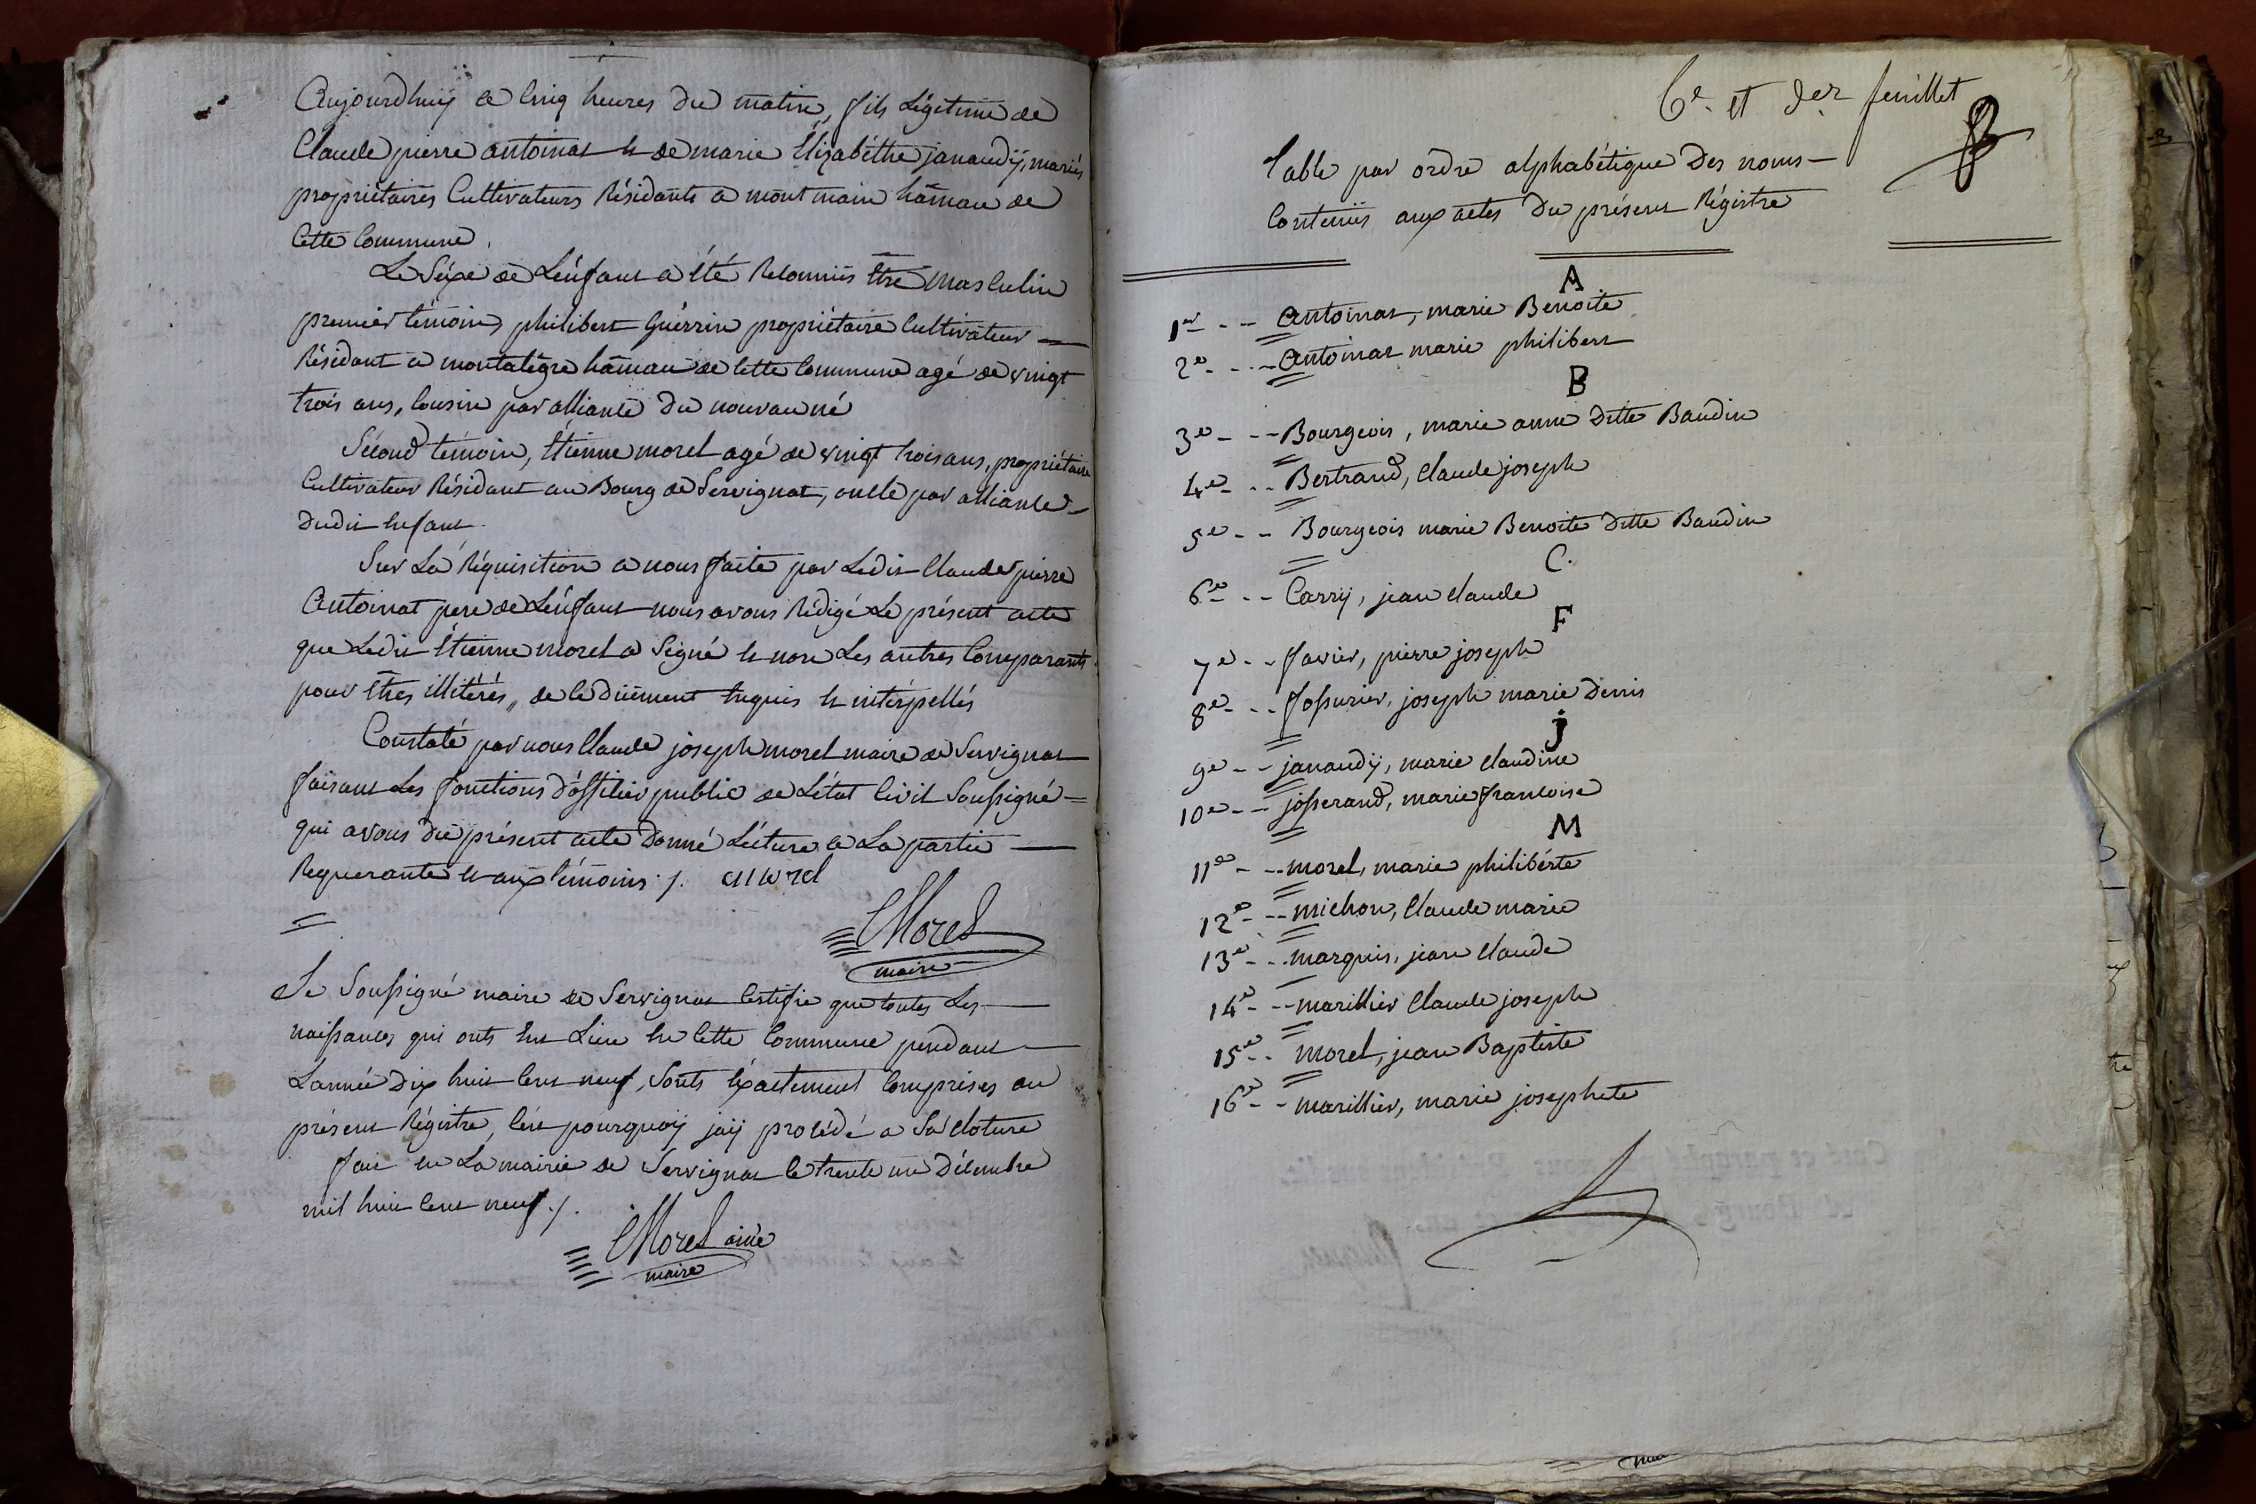 Aujourdhuij a Cinq heures du matin, fils Légitime de
Claude pierre antoinat et de marie Élizabéthe janaudij, mariés
propriétaires Cultivateurs Résidants a montmain hâmau de
Cette Commune.
Le Séxe de Lénfant a été Reconnus être masculin
premier témoin, philibert Guérrin propriétaire Cultivateur
Résidant a montalegre hâmau de Cette Commune agé de vingt
trois ans, Cousin par alliance du nouvau né
Sécond témoin, Étienne morel agé de vingt trois ans, propriétaire
Cultivateur Résidant au Bourg de Servignat, oncle par alliance
dudit Enfant.
Sur La Réquisition a nous faite par Ledit Claude pierre
Antoinat pere de Lénfant nous avons Rédigé Le présent acte
que Ledit Étienne morel a Signé et non Les autres Comparants
pour êtres illitérés, de Ce dûement Enquis et intérpellés
Constaté par nous Claude joseph morel maire de Servignat
faisant Les fonctions d'officier public de L'état Civil Soussigné
qui avons du présent acte Donné Lécture a La partie
Requerante et aux témoins ./. Morel
CMorel
maire
Je Soussigné maire de Servignat Certifie que toutes Les
naissances qui onts Eut Lieu En Cette Commune pendant
Lannée Dix huit Cent neuf, Sonts Éxactement Comprises au
présent Régistre, Cést pourquoij jaij procédé a Sa Cloture
fait En La mairie de Servignat Ce trente un Décembre
mil huit Cent neuf ./.
CMorel ainé
maire
6e. et der feuillet
Table par ordre alphabétique Des noms
Contenus aux actes Du présent Régistre
A
1er - - Antoinat, marie Benoite
2e - - - Antoinat marie philibert
B
3e - - - Bourgeois, marie anne Ditte Baudin
4e - - - Bertrand, Claude joseph
5e - - Bourgeois marie Benoite Ditte Baudin
C.
6e - - - Carrij, jean claude
F
7e - - favier, pierre joseph
8e - - - fossurier, joseph marie denis
j
9e - - janaudij, marie claudine
10e - - josserand, marie francoise
M
11e - - - morel, marie philibérte
12e - - - michon, Claude marie
13e - - - marquis, jean claude
14e - - - marillier Claude joseph
15e - - morel, jean Baptiste
16e - - marillier, marie josephete